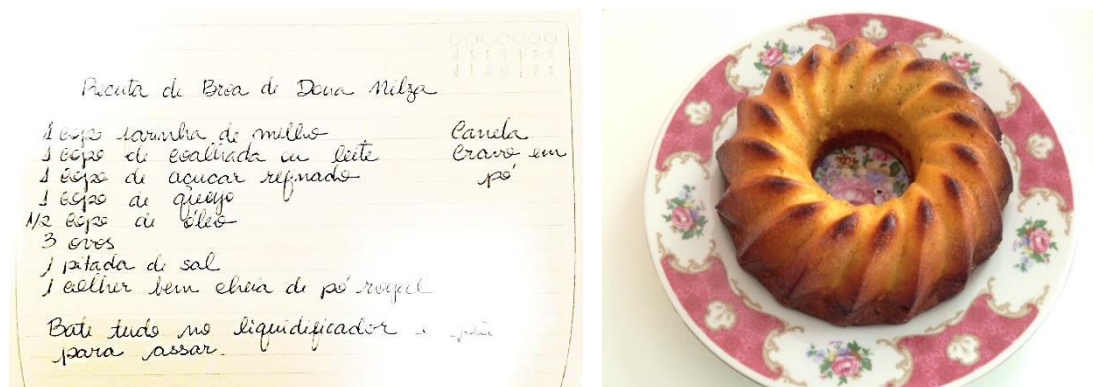 Receita de Broa de Dona Nilza
1 copo farinha de milho
1 copo de coalhada ou leite
1 copo de açucar refinado
1 copo de queijo
1/2 copo de óleo
3 ovos
1 pitada de sal
1 colher bem cheia de pó royal
Canela
Cravo em
pó
Bate tudo no liquidificador e
para assar.